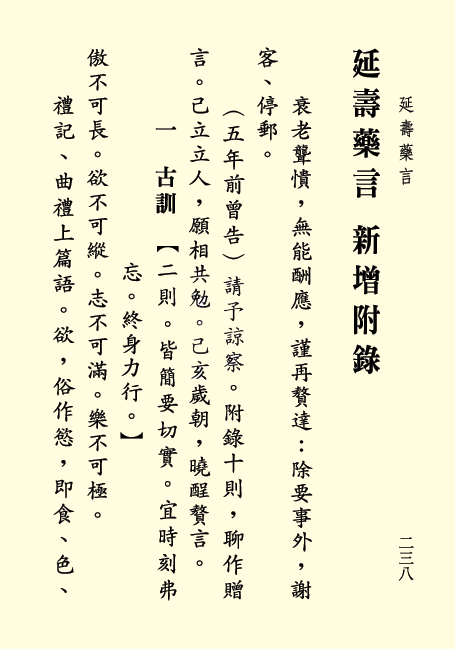 延壽藥言
二三八
延壽藥言 新增附錄
衰老聾憒，無能酬應，謹再贅達：除要事外，謝
客、停郵。
（五年前曾告）請予諒察。附錄十則，聊作贈
言。己立立人，願相共勉。己亥歲朝，曉醒贅言。
一 古訓 【二則。皆簡要切實。宜時刻弗
忘。終身力行。】
傲不可長。欲不可縱。志不可滿。樂不可極。
禮記、曲禮上篇語。欲，俗作慾，即食、色、